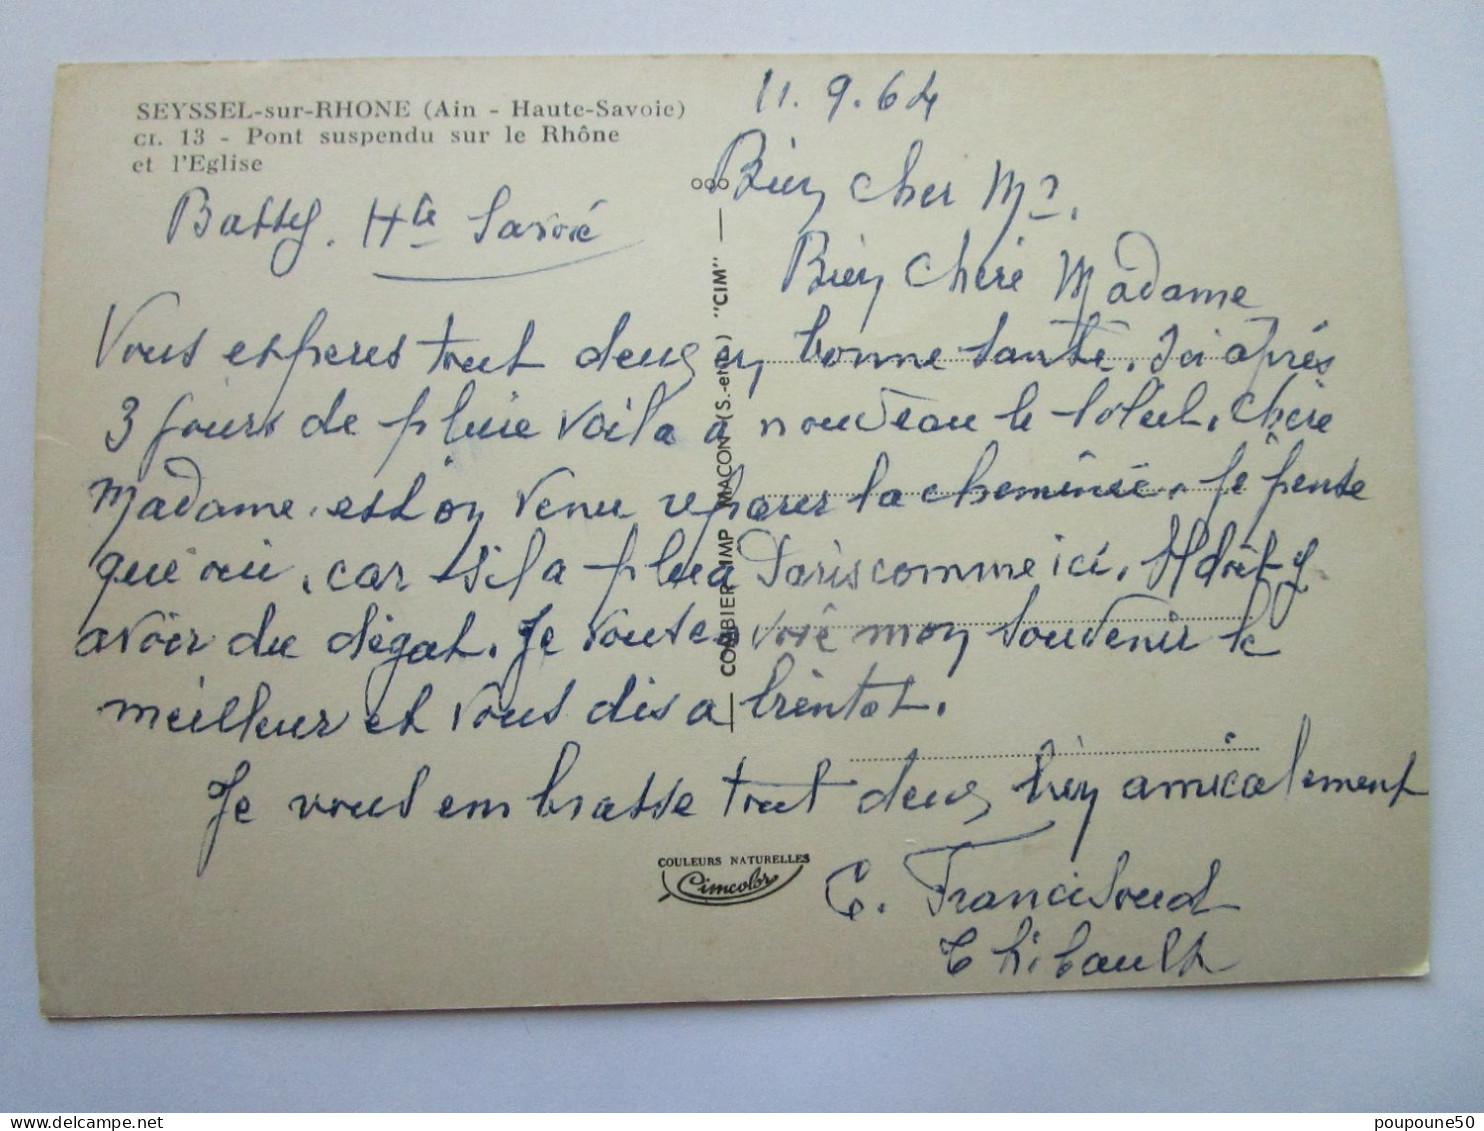 SEYSSEL-sur-RHONE (Ain - Haute-Savoie)
CI. 13 - Pont suspendu sur le Rhône
et l'Eglise
11.9.64
Bassy. Hte Savoie
Bien cher Mr.
Bien chere Madame
Vous esperes tout deux en bonne santé. Ici après
3 jours de pluie voila a nouveau le soleil. Chère
Madame. est on venu reparer la cheminée. Je pense
que oui, car s'il a plu a Paris comme ici. Il doit y
avoir du dégat. Je vous envoie mon souvenir le
meilleur et vous dis a bientot.
Je vous embrasse tout deux bien amicalement
C. Francisoud
Thibault
COMBIER IMP MACON (S.-et-L.) "CIM"
COULEURS NATURELLES
Cimcolor
poupoune50